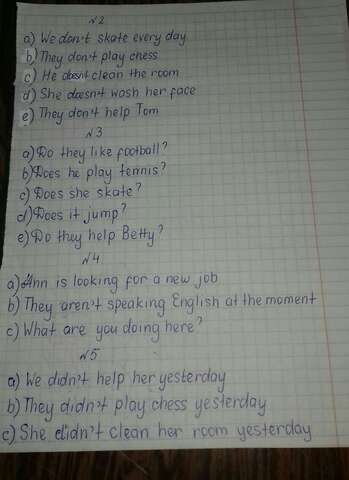 №2
a) We don't skate every day
b) They don't play chess
c) He doesn't clean the room
d) She doesn't wash her face
e) They don't help Tom
№3
a) Do they like football?
b) Does he play tennis?
c) Does she skate?
d) Does it jump?
e) Do they help Betty?
№4
a) Ann is looking for a new job
b) They aren't speaking English at the moment
c) What are you doing here?
№5
a) We didn't help her yesterday
b) They didn't play chess yesterday
c) She didn't clean her room yesterday